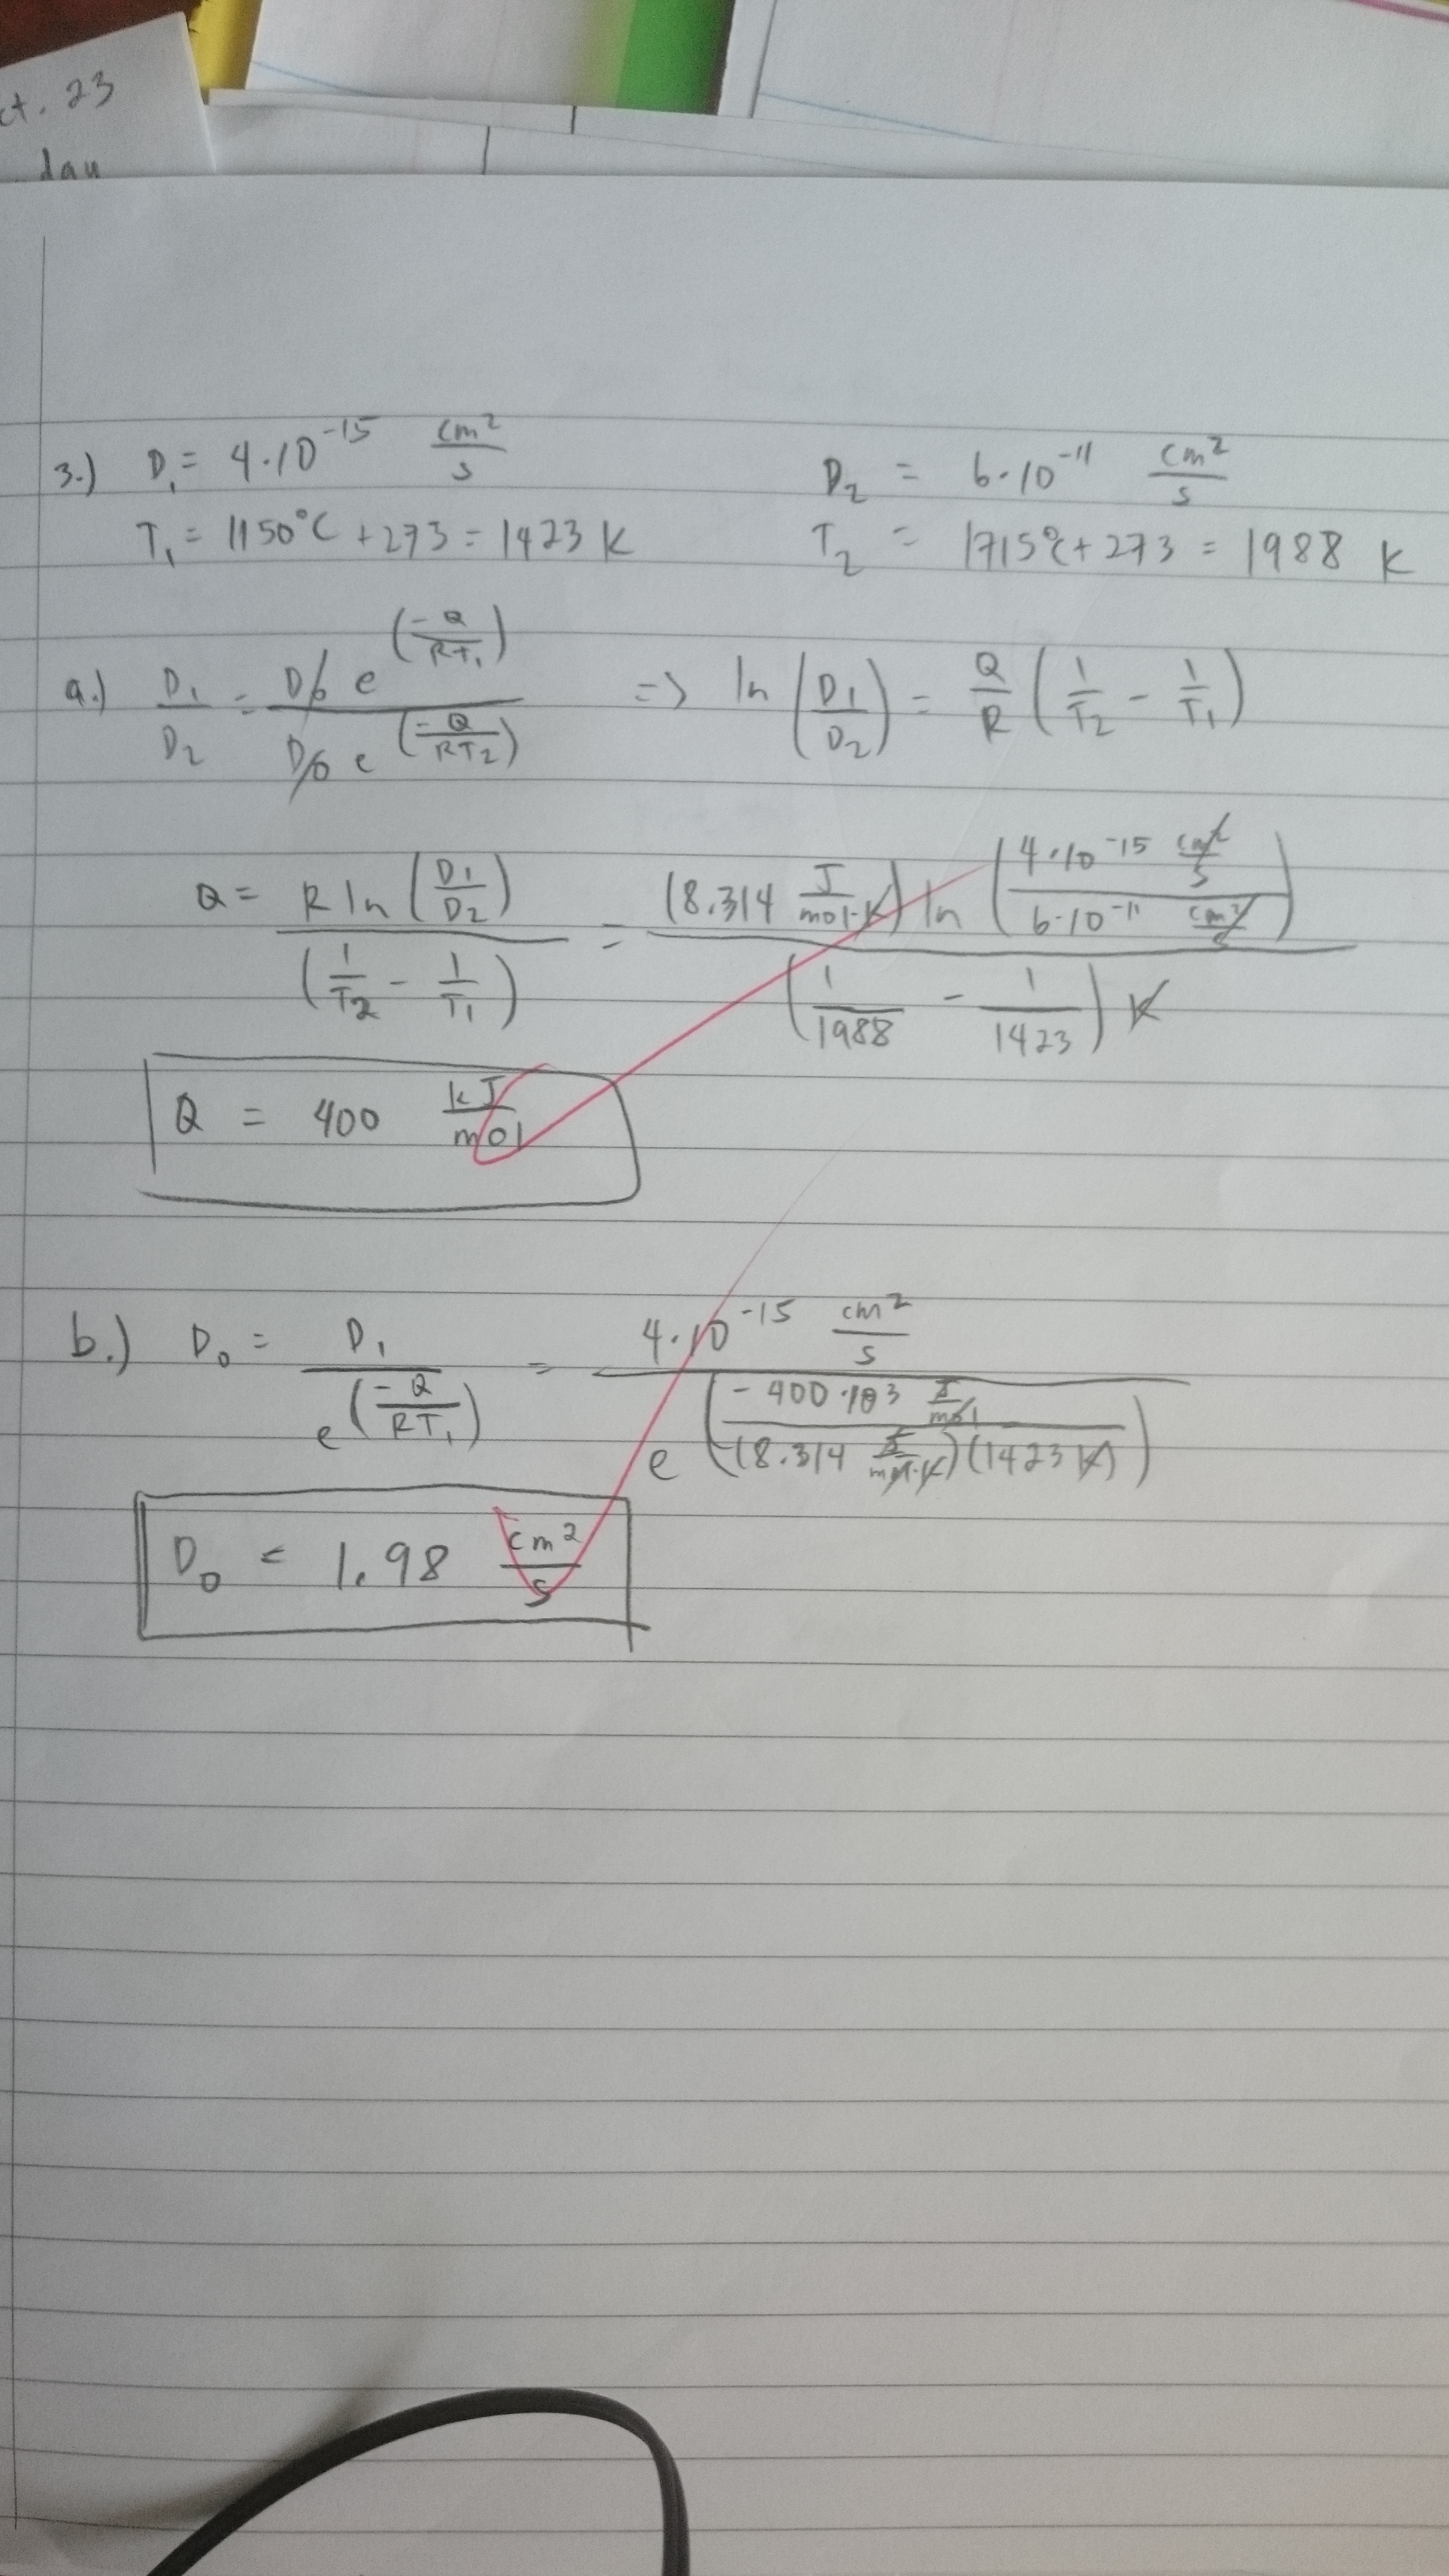 ct. 23
dau
3.) D₁ = 4·10⁻¹⁵ cm²/s D₂ = 6·10⁻¹¹ cm²/s
T₁ = 1150°C + 273 = 1423 K T₂ = 1715°C + 273 = 1988 K
a.) D₁/D₂ = D₀ e^(-Q/RT₁) / D₀ e^(-Q/RT₂) => ln (D₁/D₂) = Q/R (1/T₂ - 1/T₁)
Q = R ln (D₁/D₂) / (1/T₂ - 1/T₁) = (8.314 J/mol·K) ln (4·10⁻¹⁵ cm²/s / 6·10⁻¹¹ cm²/s) / (1/1988 - 1/1423) K
Q = 400 kJ/mol
b.) D₀ = D₁ / e^(-Q/RT₁) = 4·10⁻¹⁵ cm²/s / e^(-400·10³ J/mol / (8.314 J/mol·K)(1423 K))
D₀ = 1.98 cm²/s